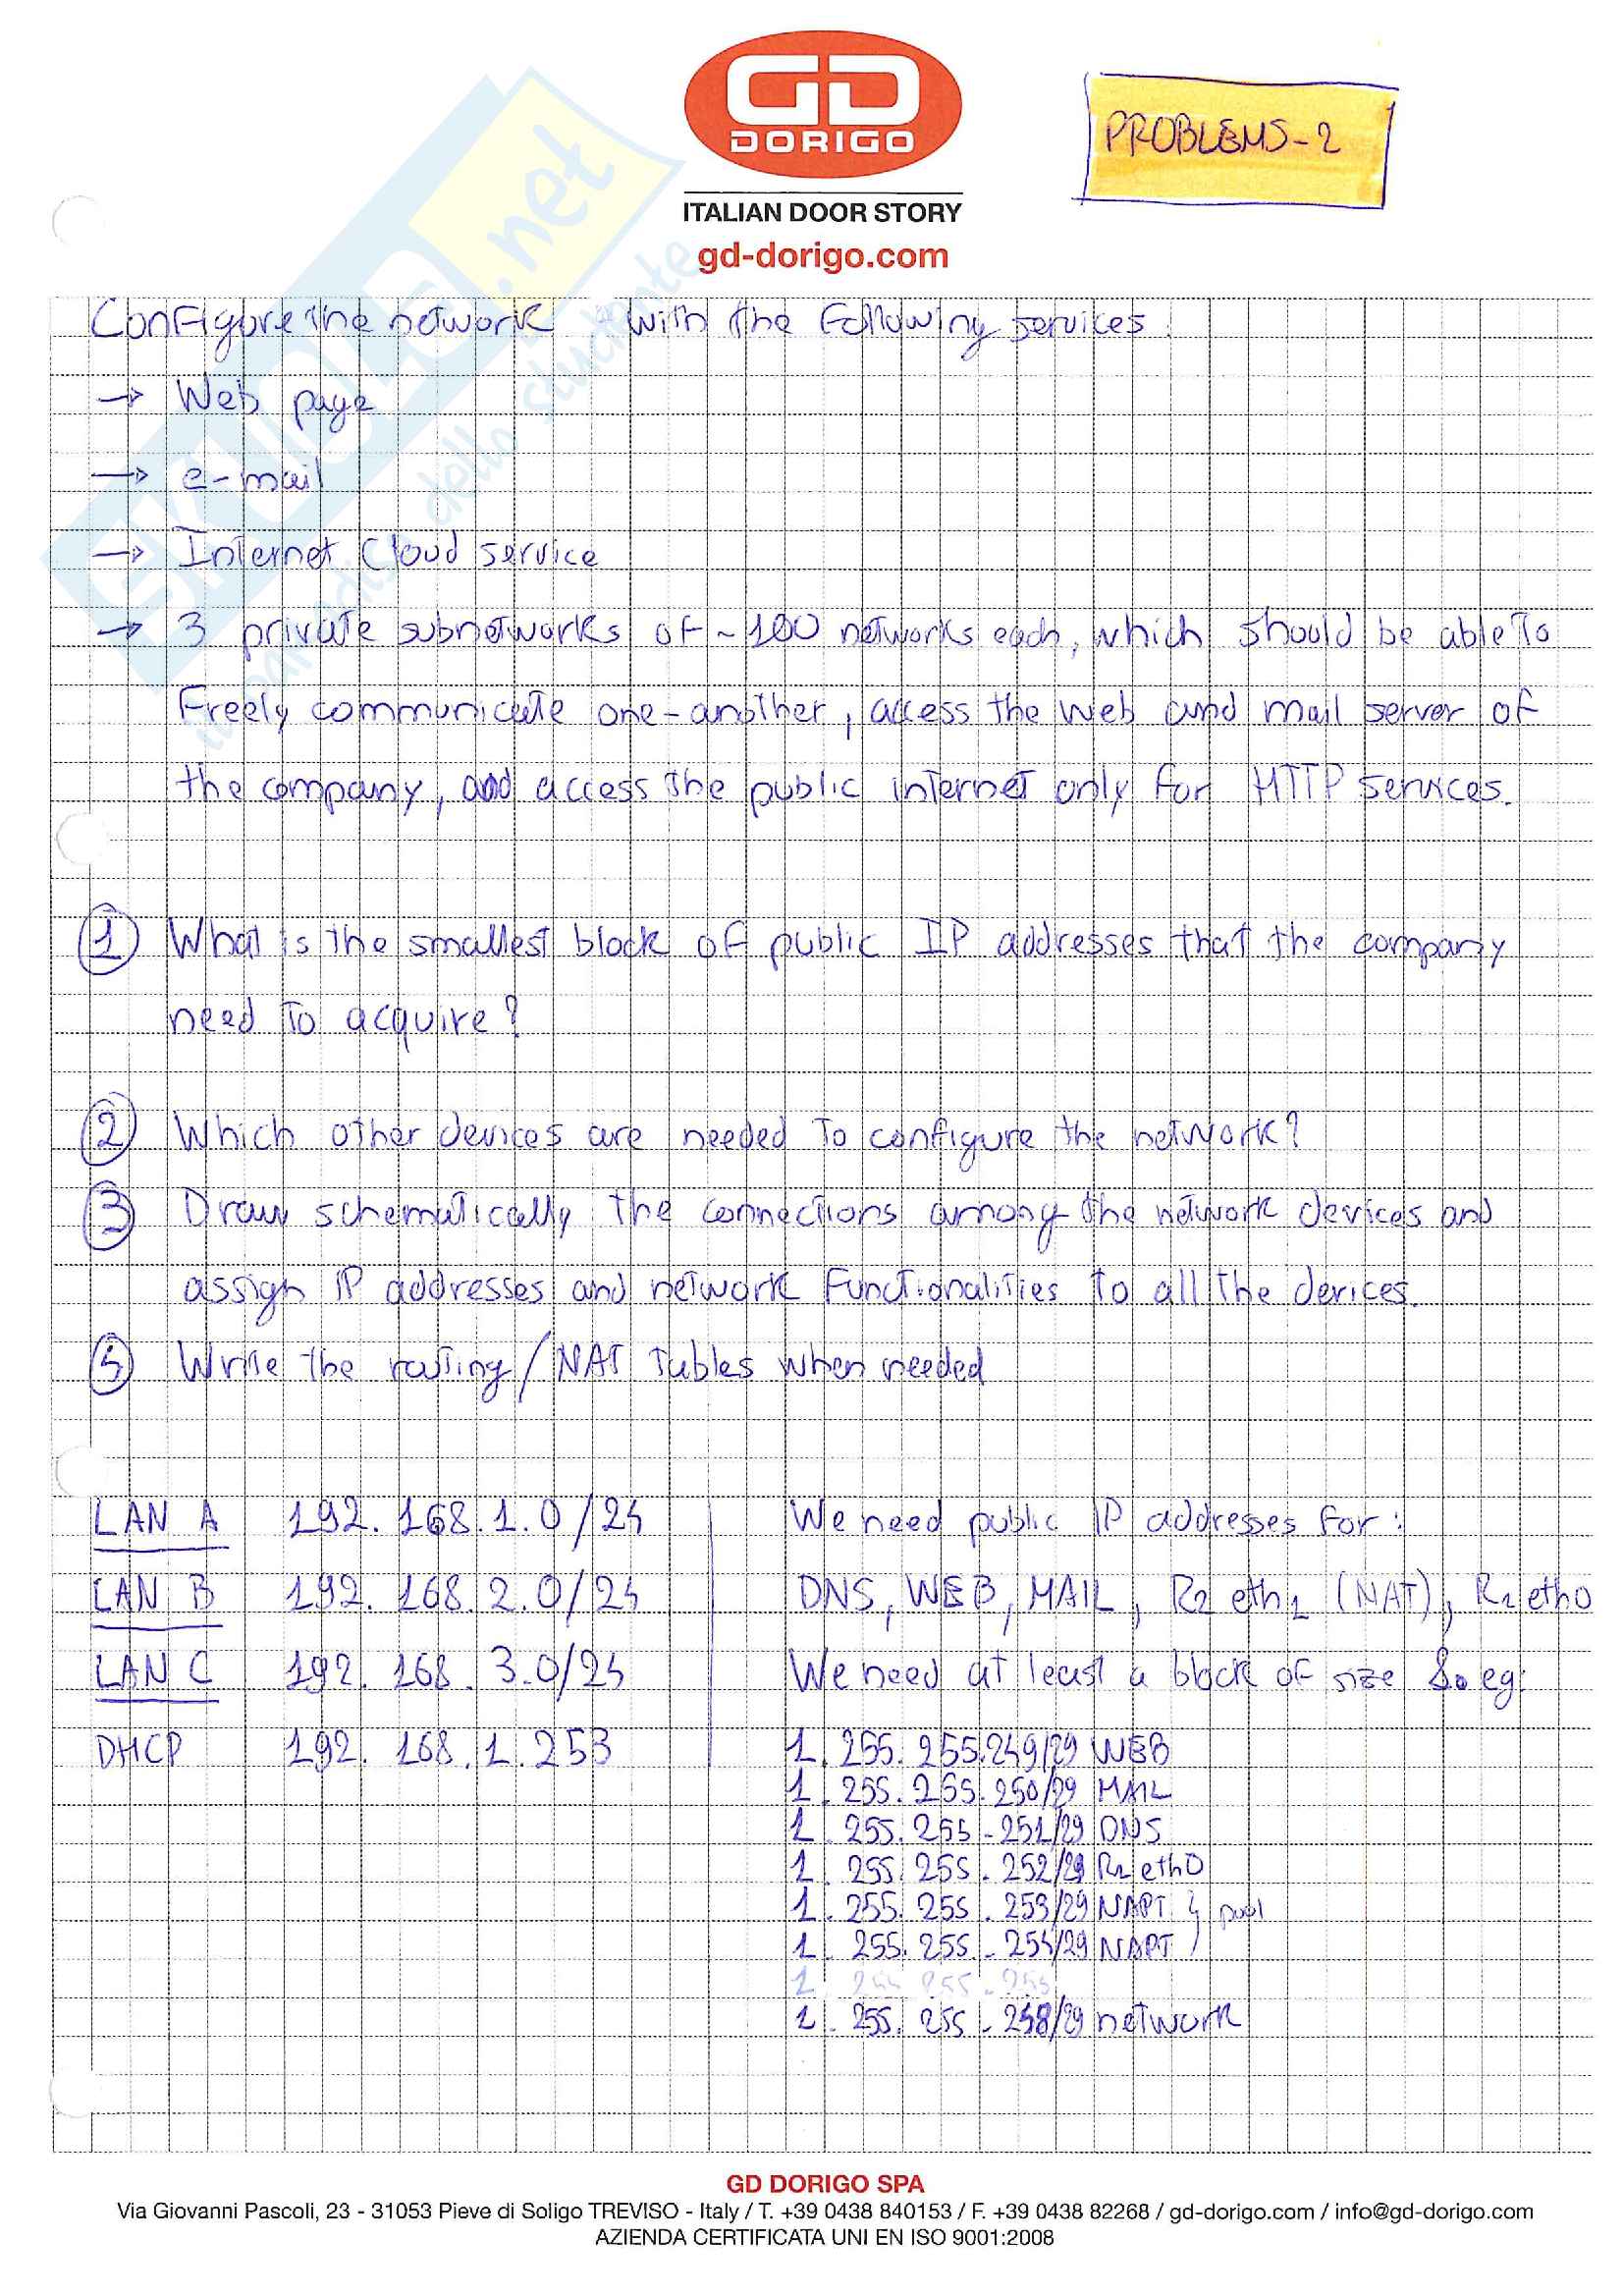 GD
DORIGO
ITALIAN DOOR STORY
gd-dorigo.com
PROBLEMS-2
SKUOLA.net
il paradiso dello studente
Configure the network with the following services:
→ Web page
→ e-mail
→ Internet Cloud service
→ 3 private subnetworks of ~100 networks each, which should be able to
Freely communicate one-another, access the web and mail server of
the company, and access the public internet only for HTTP services.
1 What is the smallest block of public IP addresses that the company
need to acquire?
2 Which other devices are needed to configure the network?
3 Draw schematically the connections among the network devices and
assign IP addresses and network Functionalities to all the devices.
4 Write the routing/NAT Tables when needed
LAN A 192.168.1.0/24
LAN B 192.168.2.0/24
LAN C 192.168.3.0/24
DHCP 192.168.1.253
We need public IP addresses for:
DNS, WEB, MAIL, R2 eth1 (NAT), R1 eth0
We need at least a block of size 8. eg:
1.255.255.249/29 WEB
1.255.255.250/29 MAIL
1.255.255.251/29 DNS
1.255.255.252/29 R1 eth0
1.255.255.253/29 NAPT } pool
1.255.255.254/29 NAPT
1.255.255.248/29 network
GD DORIGO SPA
Via Giovanni Pascoli, 23 - 31053 Pieve di Soligo TREVISO - Italy / T. +39 0438 840153 / F. +39 0438 82268 / gd-dorigo.com / info@gd-dorigo.com
AZIENDA CERTIFICATA UNI EN ISO 9001:2008